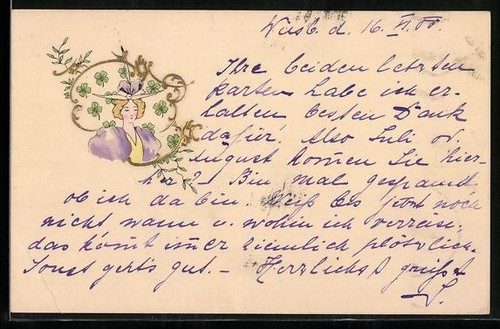 Wiesb. d. 16. VI. 00.
Ihre beiden letzten
Karten habe ich er-
halten besten Dank
dafür! Also Juli od.
August kommen Sie hier-
her? - Bin mal gespannt
ob ich da bin. Weiß bis jetzt noch
nicht wann u. wohin ich verreise,
das komt imer ziemlich plötzlich.
Sonst geht's gut. - Herzlichst grüßt